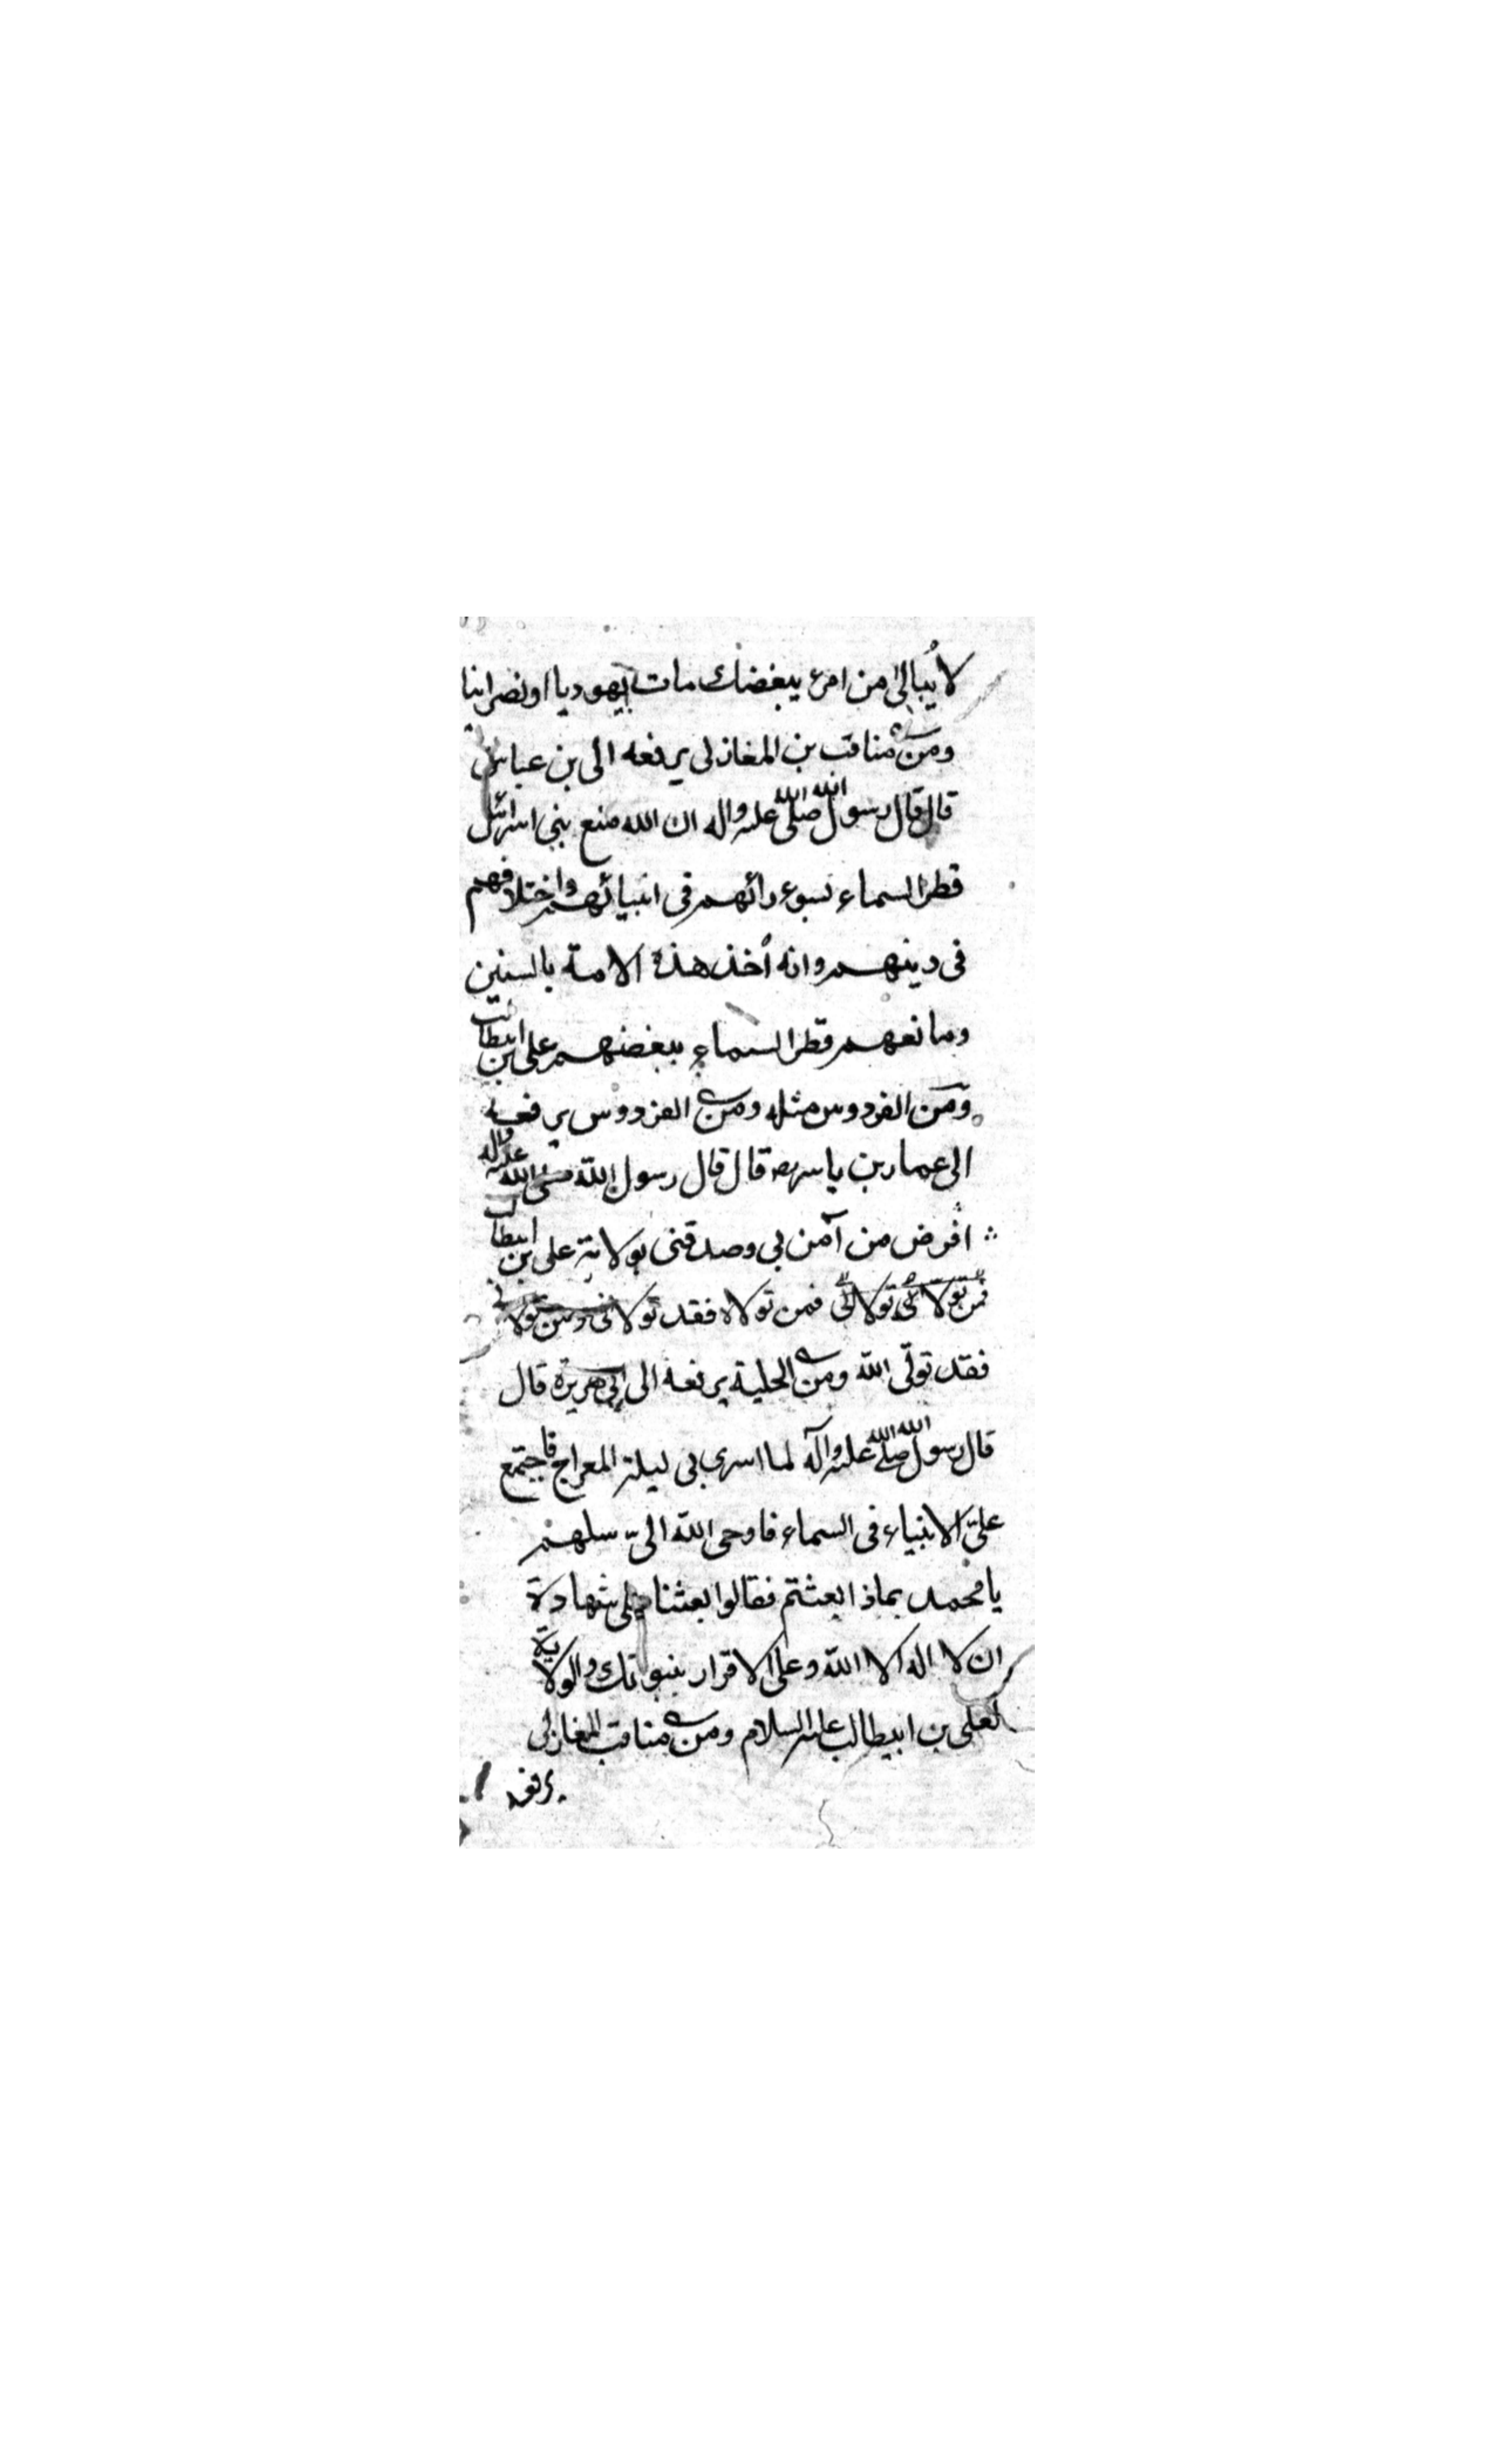 لا يبالى من امرء يبغضك مات يهوديا او نصرانيا
ومن مناقب بن المغازلى يرفعه الى بن عباس
قال قال رسول الله صلى الله عليه واله ان الله منع بنى اسرائيل
قطر السماء بسوء رائهم فى انبيائهم واختلافهم
فى دينهم وانه أخذ هذه الامة بالسنين
ومانعهم قطر السماء ببغضهم على بن ابيطالب
ومن الفردوس مثله ومن الفردوس يرفعه
الى عمار بن ياسر قال قال رسول الله صلى الله عليه واله
افرض من آمن بى وصدقنى بولاية على بن ابيطالب
فمن تولاه فقد تولانى ومن تولانى
فقد تولّى الله ومن الحلية يرفعه الى ابى هريرة قال
قال رسول الله صلى الله عليه وآله لما اسرى بى ليلة المعراج فاجتمع
علىّ الانبياء فى السماء فاوحى الله الىّ سلهم
يا محمد بماذا بعثتم فقالوا بعثنا على شهادة
ان لا اله الا الله وعلى الاقرار بنبوتك والولاية
لعلى بن ابيطالب عليه السلام ومن مناقب المغازلى
يرفعه